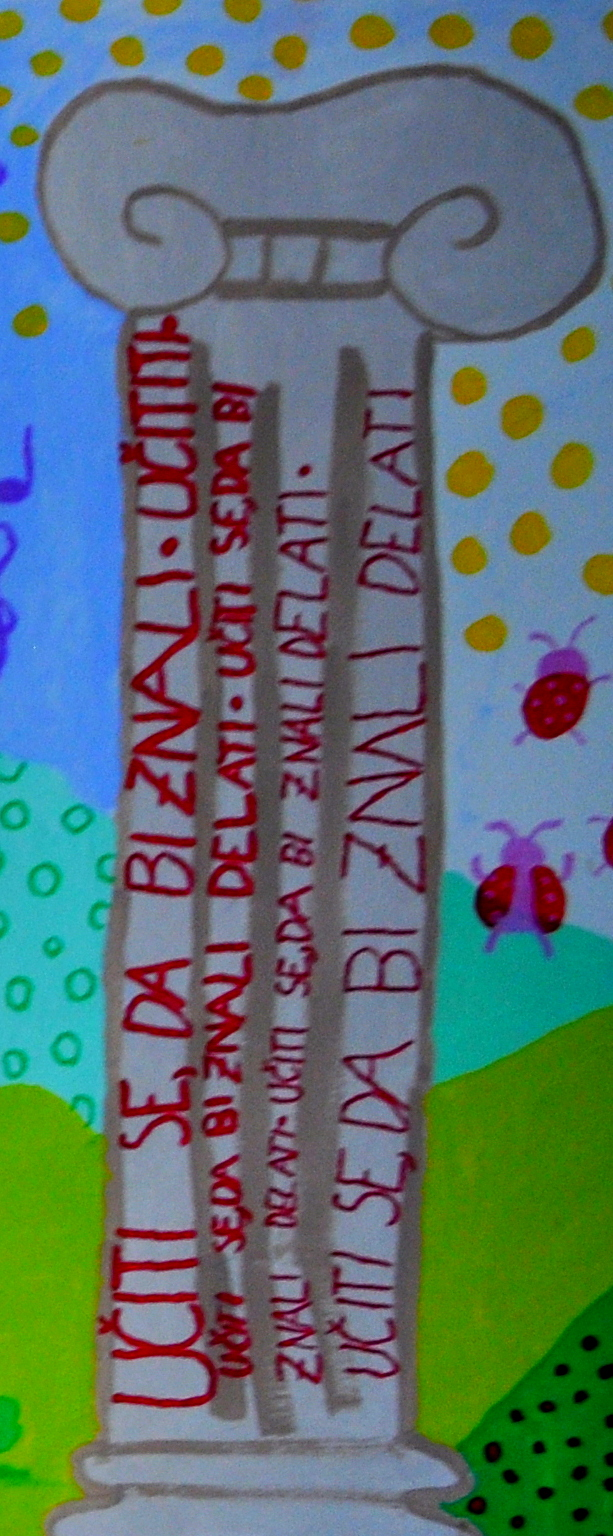 UČITI SE, DA BI ZNALI • UČITITI
UČITI SE, DA BI ZNALI DELATI • UČITI SE, DA BI
ZNALI DELATI • UČITI SE, DA BI ZNALI DELATI •
UČITI SE, DA BI ZNALI DELATI